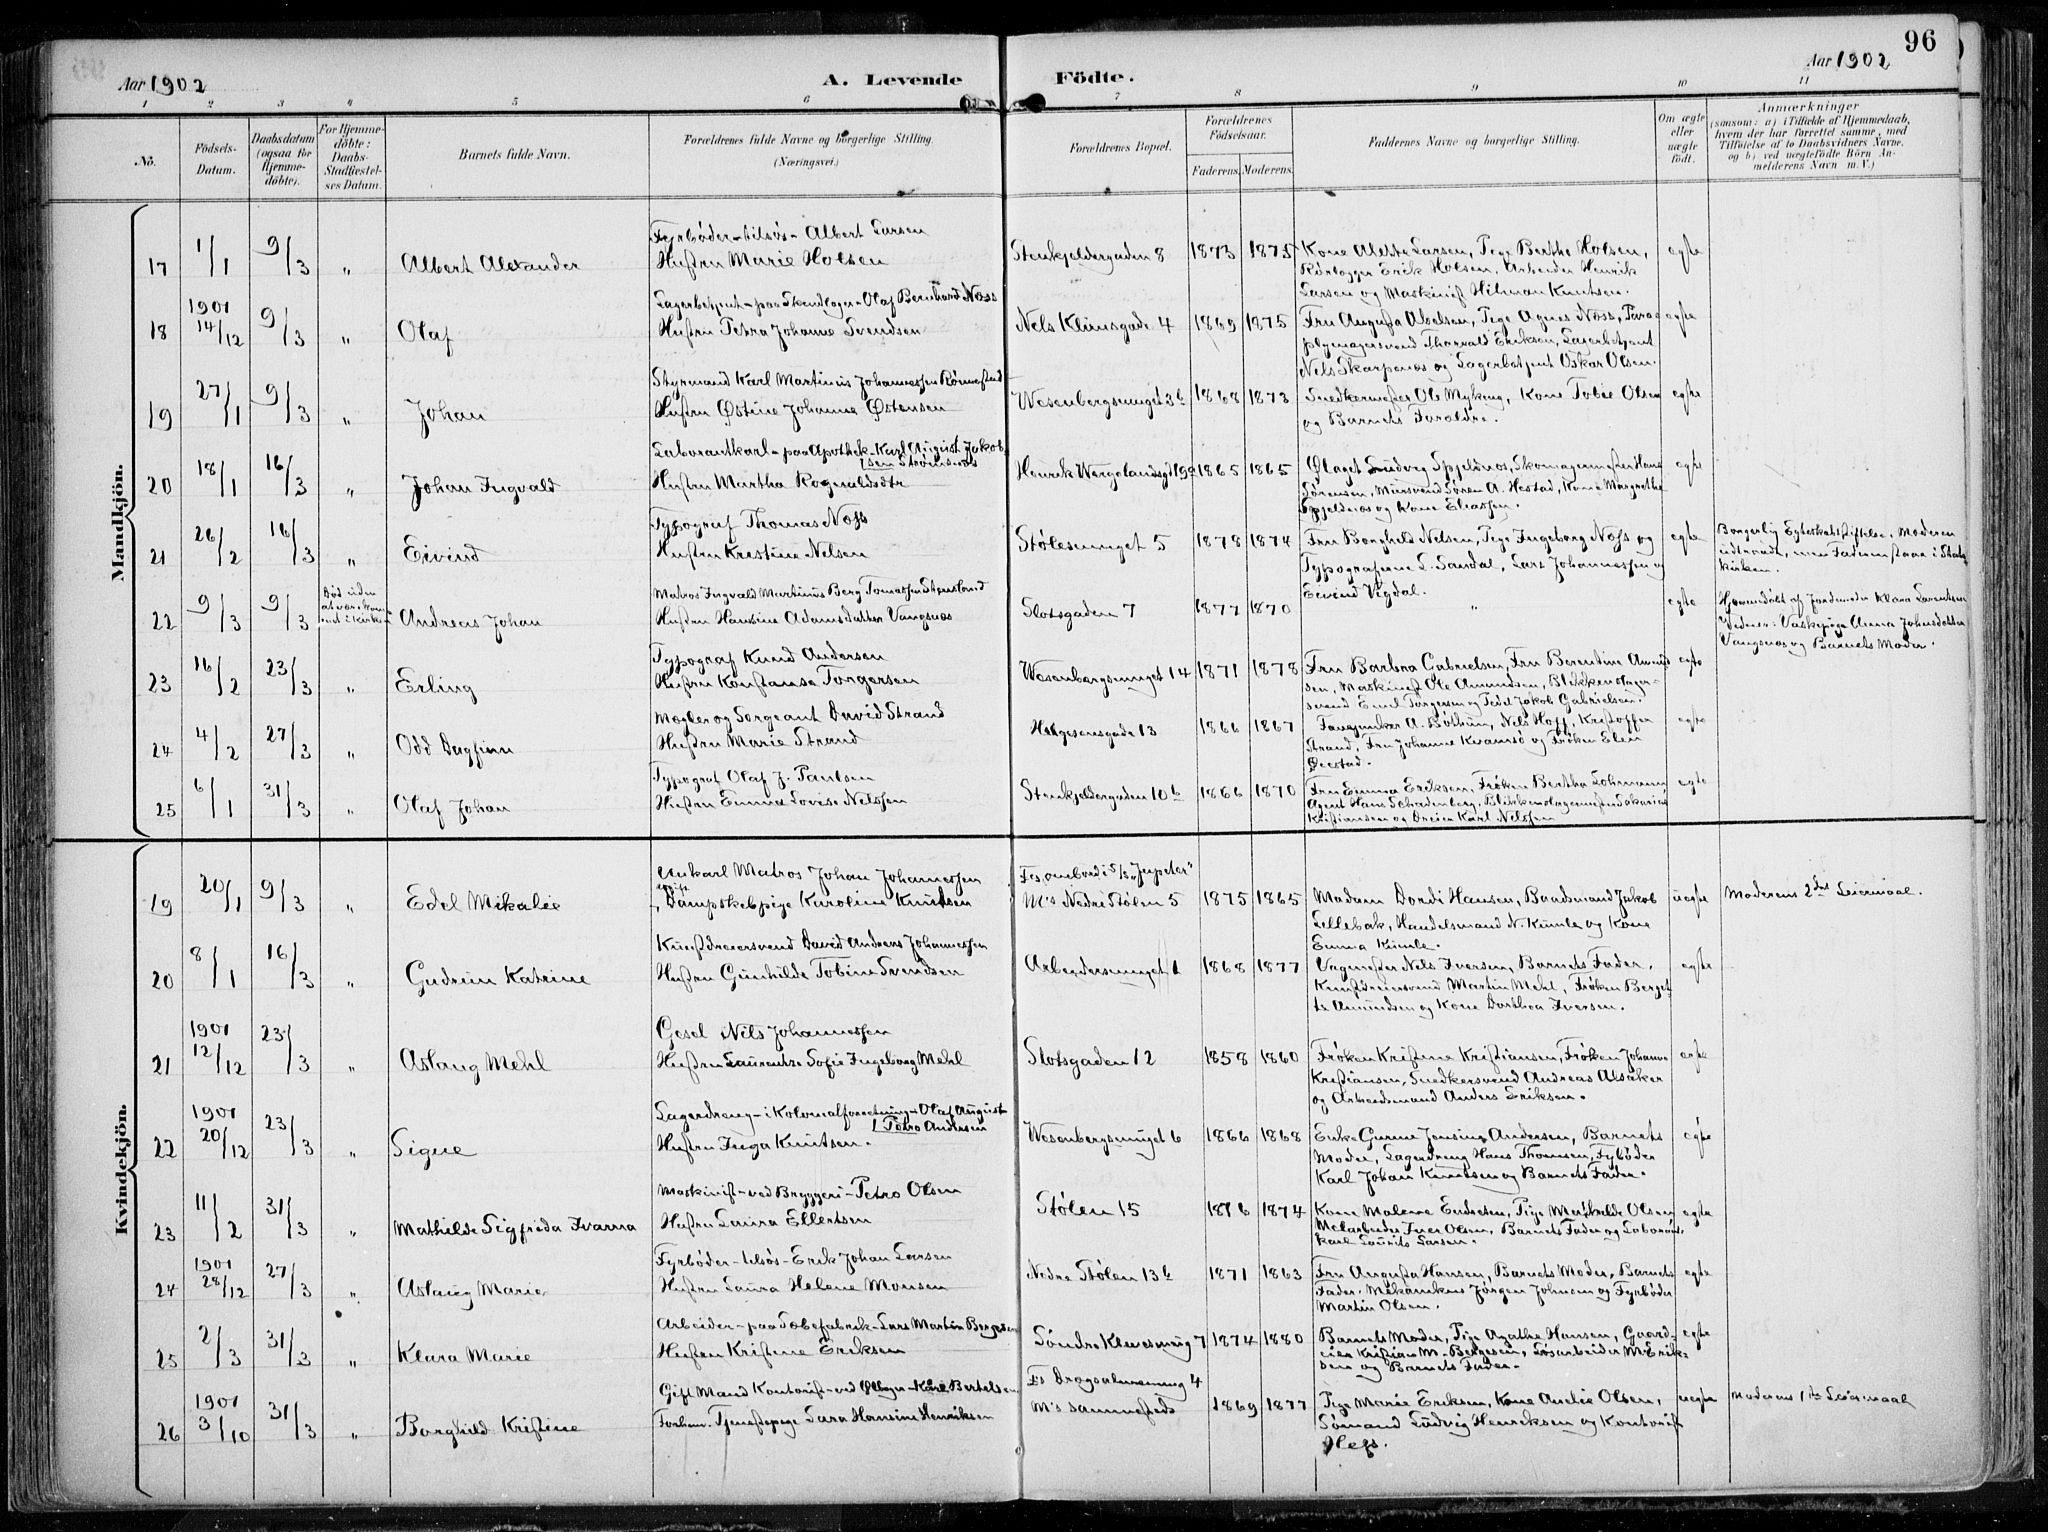 96
Aar 1902
A. Levende
Födte.
Aar 1902
1 2 3 4 5 6 7 8 9 10 11
No.
Födsels-
Datum.
Daabsdatum
(ogsaa for
Hjemme-
döbte).
For Hjemme-
döbte:
Daabs-
Stadfæstel-
ses Datum.
Barnets fulde Navn.
Forældrenes fulde Navne og borgerlige Stilling.
(Næringsvei.)
Forældrenes Bopæl.
Forældrenes
Födselsaar.
Faderens. Moderens.
Faddernes Navne og borgerlige Stilling.
Om ægte
eller
uægte
födt.
Anmærkninger
(saasom: a) i Tilfælde af Hjemmedaab,
hvem der har forrettet samme, med
Tilföielse af to Daabsvidners Navne,
og b) ved uægtefödte Börn An-
melderens Navn m. V.)
Mandkjön.
17 1/1 9/3 " Albert Alexander
Fyrbøder-tilsøs- Albert Larsen
Hustru Marie Holsen
Stenkjeldergaden 8 1873 1875
Kone Alette Larsen, Pige Berthe Holsen,
Rørlægger Erik Holsen, Arbeider Henrik
Larsen og Maskinist Hilman Knutsen.
egte
18 1901 14/12 9/3 " Olaf
Lagerbetjent-paa Skindlager-Olaf Bernhard Næss
Hustru Petra Johanne Svendsen
Nels Klimsgade 4 1869 1875
Fru Augusta Abelsen, Pige Agnes Næss, Para-
plymagersvend Thorvald Eriksen, Lagerbetjent
Nils Skarpenæs og Lagerbetjent Oskar Olsen.
egte
19 27/1 9/3 " Johan
Styrmand Karl Martinius Johannessen Rønnestad
Hustru Østine Johanne Østensen
Wesenbergsmuget 3b 1868 1873
Snedkermester Ole Myking, Kone Tobie Olsen
og Barnets Forældre.
egte
20 18/1 16/3 " Johan Ingvald
Laborantkarl-paa Apothek-Karl August Jakob
sen Strømsnæs
Hustru Martha Rognaldsdtr
Henrik Wergelandsgt 19a 1865 1865
Ludvig Spjeldnæs, Skomagermester Hans
Sørensen, Mursvend Søren A. Hestad, Kone Margrethe
Spjeldnæs og Kone Eliassen.
egte
21 26/2 16/3 " Eivind
Typograf Thomas Næss
Hustru Kristine Nelsen
Stølesmuget 5 1878 1874
Fru Borghild Nelsen, Pige Ingeborg Næss og
Typograferne L. Sandal, Lars Johannessen og
Eivind Vigdal.
egte
Borgerlig Egteskabsstiftelse. Moderen
udtraadt, men Faderen staar i Stats
kirken.
22 9/3 9/3 Død uden
at være kom
met i kirken
Andreas Johan
Matros Ingvald Martinius Berg Tomassen Stensland
Hustru Hansine Adamsdatter Vangsnæs
Slotsgaden 7 1877 1870 " egte
Hjemmedøbt af Jordmoder Klara Larentsen
Vidner: Vaskepige Anna Johnsdatter
Vangsnæs og Barnets Moder.
23 16/2 23/3 " Erling
Typograf Knud Andersen
Hustru Konstanse Torgersen
Wesenbergsmuget 14 1871 1878
Fru Barbra Gabrielsen, Fru Berentine Amund
sen, Maskinist Ole Amundsen, Blikkenslager-
svend Emil Torgersen og Pedel Jakob Gabrielsen.
egte
24 4/2 27/3 " Odd Dagfinn
Mægler og Sergeant David Strand
Hustru Marie Strand
Helgesensgade 13 1866 1867
Fanejunker A. Bøthun, Nils Hoff, Kristoffer
Strand, Fru Johanne Kvamsø og Frøken Elen
Ørestad.
egte
25 6/1 31/3 " Olaf Johan
Typograf Olaf J. Paulsen
Hustru Emma Lovise Nelssen
Stenkjeldergaden 10b 1866 1870
Fru Emma Eriksen, Frøken Bertha Lohmann,
Agent Hans Schadenberg, Blikkenslagermester Sakarias
Kristiansen og Dreier Karl Nilssen
egte
Kvindekjön.
19 20/1 9/3 " Edel Mikalie
Unkarl Matros Johan Johannessen
ugift Dampskebpige Karoline Knutsen
Fs. ombord i S/S "Jupeter"
M's Nedre Stølen 5 1875 1865
Madam Dordi Hansen, Baadsmand Jakob
Lillebak, Handelsmand N. Kumle og Kone
Emma Kumle.
uegte Moderens 2det Leiermaal.
20 8/1 16/3 " Gudrun Katrine
Kunstdreiersvend David Andreas Johannessen
Hustru Gunhilde Tobine Svendsen
Arbeidersmuget 1 1868 1877
Vagmester Nils Iversen, Barnets Fader,
Kunstdreiersvend Martin Mehl, Frøken Berget-
te Amundsen og Kone Dorthea Iversen.
egte
21 1901 12/12 23/3 " Aslaug Mehl
Gesel Nils Johannessen
Hustru Laurentse Sofie Ingeborg Mehl
Slotsgaden 12 1858 1860
Frøken Kristine Kristiansen, Frøken Johanne
Kristiansen, Snedkersvend Andreas Alsaker
og Arbeidsmand Anders Eriksen.
egte
22 1901 20/12 23/3 " Signe
Lagerdreng-i Kolonialforretning-Olaf August
Petro Andersen
Hustru Inga Knutsen.
Wesenbergsmuget 6 1866 1868
Enke Gurine Jensine Andersen, Barnets
Moder, Lagerdreng Hans Thomsen, Fyrbøder
Karl Johan Knutsen og Barnets Fader.
egte
23 11/2 31/3 " Mathilde Sigfrida Ivarna
Maskinist-ved Bryggeri-Petro Olsen
Hustru Laura Ellertsen
Stølen 15 1876 1874
Kone Malene Endresen, Pige Mathilde Olsen,
Melarbeider Iver Olsen, Barnets Fader og Laborant
karl Laurits Larsen.
egte
24 1901 28/12 27/3 " Aslaug Marie
Fyrbøder-tilsøs-Erik Johan Larsen
Hustru Laura Helene Monsen
Nedre Stølen 13b 1871 1863
Fru Augusta Hansen, Barnets Moder, Barnets
Fader, Mekanikus Jørgen Johnsen og Fyrbøder
Martin Olsen.
egte
25 2/3 31/3 " Klara Marie
Arbeider-paa Sæbefabrik-Lars Martin Bergesen
Hustru Kristine Eriksen
Søndre Klevesmug 7 1874 1880
Barnets Moder, Pige Agathe Hansen, Gaard-
eier Kristian M. Bergesen, Løsarbeider M. Erik-
sen og Barnets Fader.
egte
26 1901 3/10 31/3 " Borghild Kristine
Gift Mand Kontorist-ved Bertelsen
Forhen. Tjenestepige Sara Hansine Henriksen
Fs Dragealmenning 4
M's sammesteds 1869 1877
Pige Marie Eriksen, Kone Amelie Olsen,
Sømand Ludvig Henriksen og Kontorist
Hess.
uegte Moderens 1ste Leiermaal